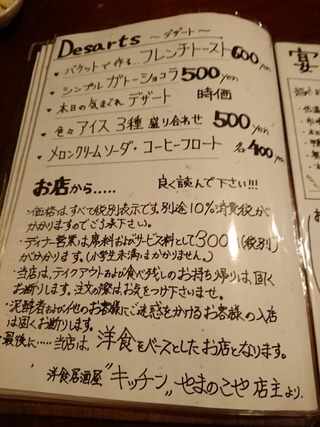 Desarts ～デザート～
♥ バケットで作る…フレンチトースト 600/yen
♥ シンプル ガトーショコラ 500/yen
♥ 本日の気まぐれ デザート 時価
♥ 色々アイス 3種 盛り合わせ 500/yen
♥ メロンクリームソーダ・コーヒーフロート 各400/yen
お店から…… 良く読んで下さい!!!
・価格は、すべて税別表示です。別途10%消費税が
かかりますのでご了承下さい。
・ディナー営業は席料およびサービス料として300円(税別)
がかかります。(小学生未満はかかりません。)
・当店は、テイクアウトおよび食べ残しのお持ち帰りは固く
お断りします。注文の際はお気をつけ下さいませ。
・泥酔者および他のお客様にご迷惑をかけるお客様の入店
は固くお断りします。
・最後に……当店は、洋食をベースとしたお店となります。
洋食居酒屋 "キッチン" やまのこや 店主より.
宴